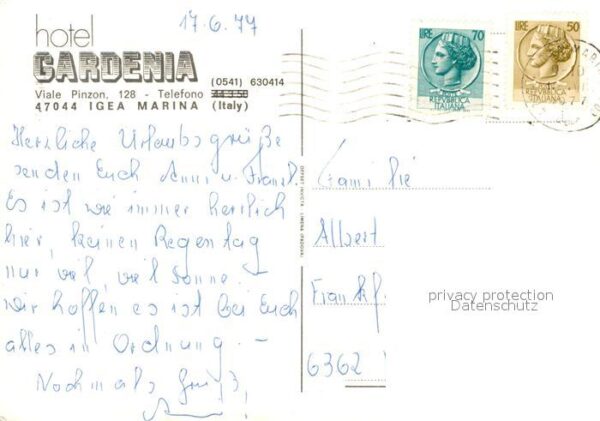 17.6.77
hotel
GARDENIA
Viale Pinzon, 128 - Telefono (0541) 630414
47044 IGEA MARINA (Italy)
LIRE 70
REPUBBLICA
ITALIANA
LIRE 50
REPUBBLICA
ITALIANA
Herzliche Urlaubsgrüße
senden Euch Anni u. Franz.
Es ist wie immer herrlich
hier, keinen Regentag
nur viel, viel Sonne.
wir hoffen es ist bei Euch
alles in Ordnung. -
Nochmals Gruß,
Familie
Albert
Frankf.
6362
privacy protection
Datenschutz